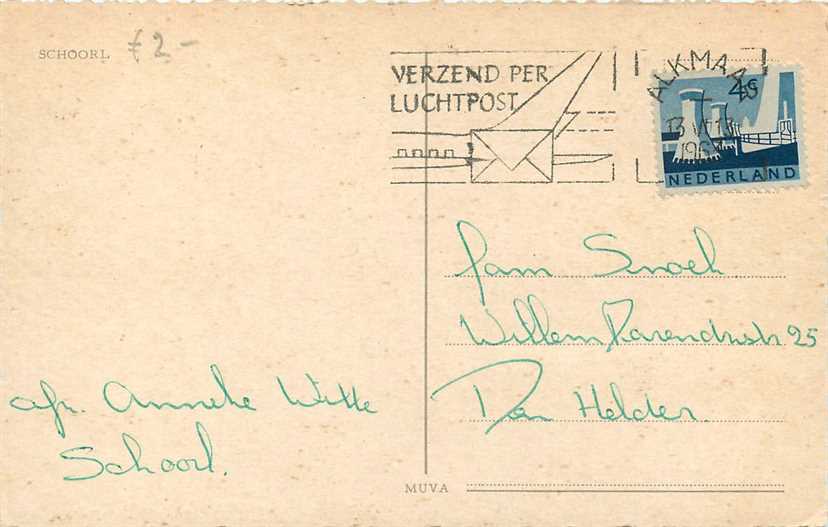 SCHOORL ƒ 2-
VERZEND PER
LUCHTPOST
ALKMAAR
4c
NEDERLAND
fam Snoek
Willem Barendszstr 25
Den Helder
afz. Anneke Witte
Schoorl.
MUVA